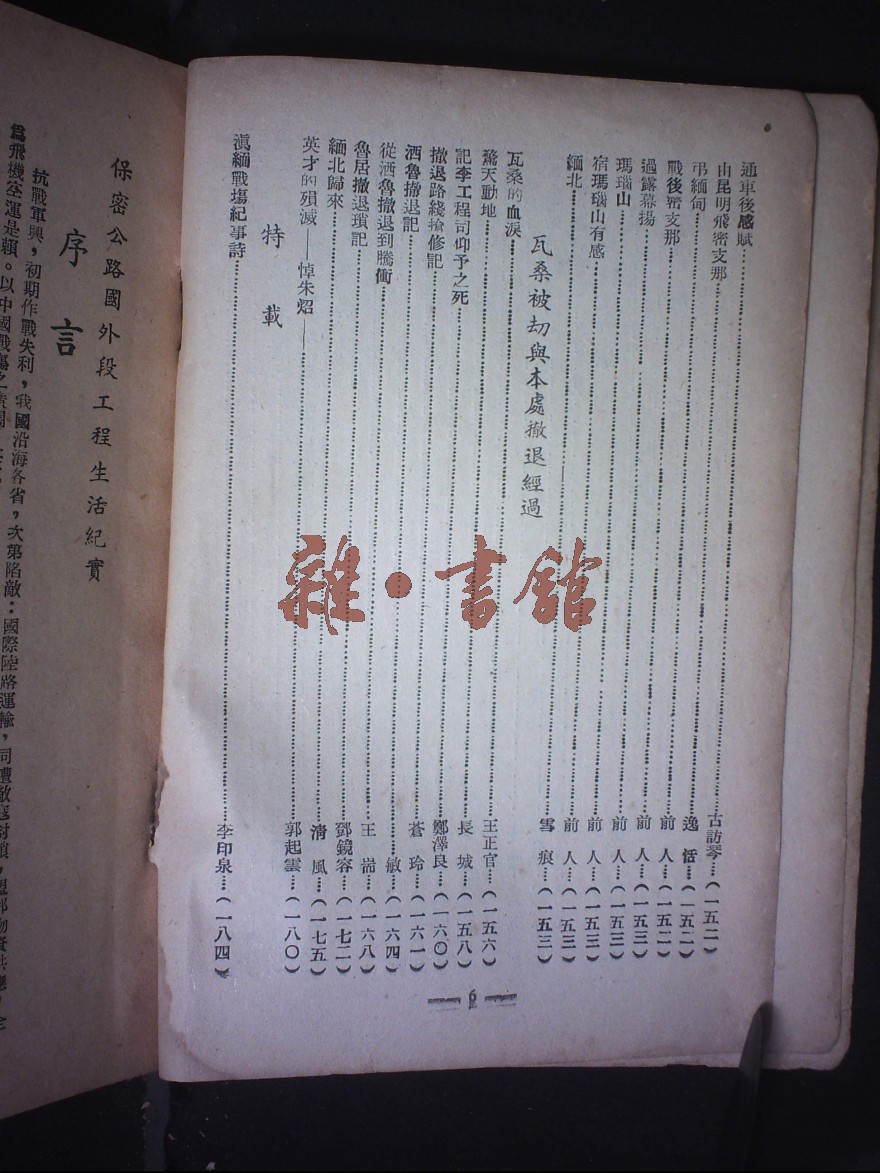 通車後感賦……古訪琴…(一五二)
由昆明飛密支那……逸恬…(一五二)
弔緬甸……前人…(一五二)
戰後密支那……前人…(一五三)
過露幕揚……前人…(一五三)
瑪瑙山……前人…(一五三)
宿瑪瑙山有感……前人…(一五三)
緬北……雪痕…(一五三)
瓦桑被刧與本處撤退經過
瓦桑的血淚……王正官…(一五六)
驚天動地……長城…(一五八)
記李工程司仰予之死……鄭澤良…(一六〇)
撤退路綫搶修記……蒼玲…(一六一)
洒魯撤退記……敏…(一六四)
從洒魯撤退到騰衝……王耑…(一六八)
魯居撤退瑣記……鄧鏡容…(一七二)
緬北歸來……清風…(一七五)
英才的殞滅——悼朱炤——……郭起雲…(一八〇)
特載
滇緬戰塲紀事詩……李印泉…(一八四)
6
雜·書館
保密公路國外段工程生活紀實
序言
抗戰軍興,初期作戰失利,我國沿海各省,次第陷敵:國際陸路運輸,同遭敵寇封鎖,
為飛機空運是賴。以中國戰場之